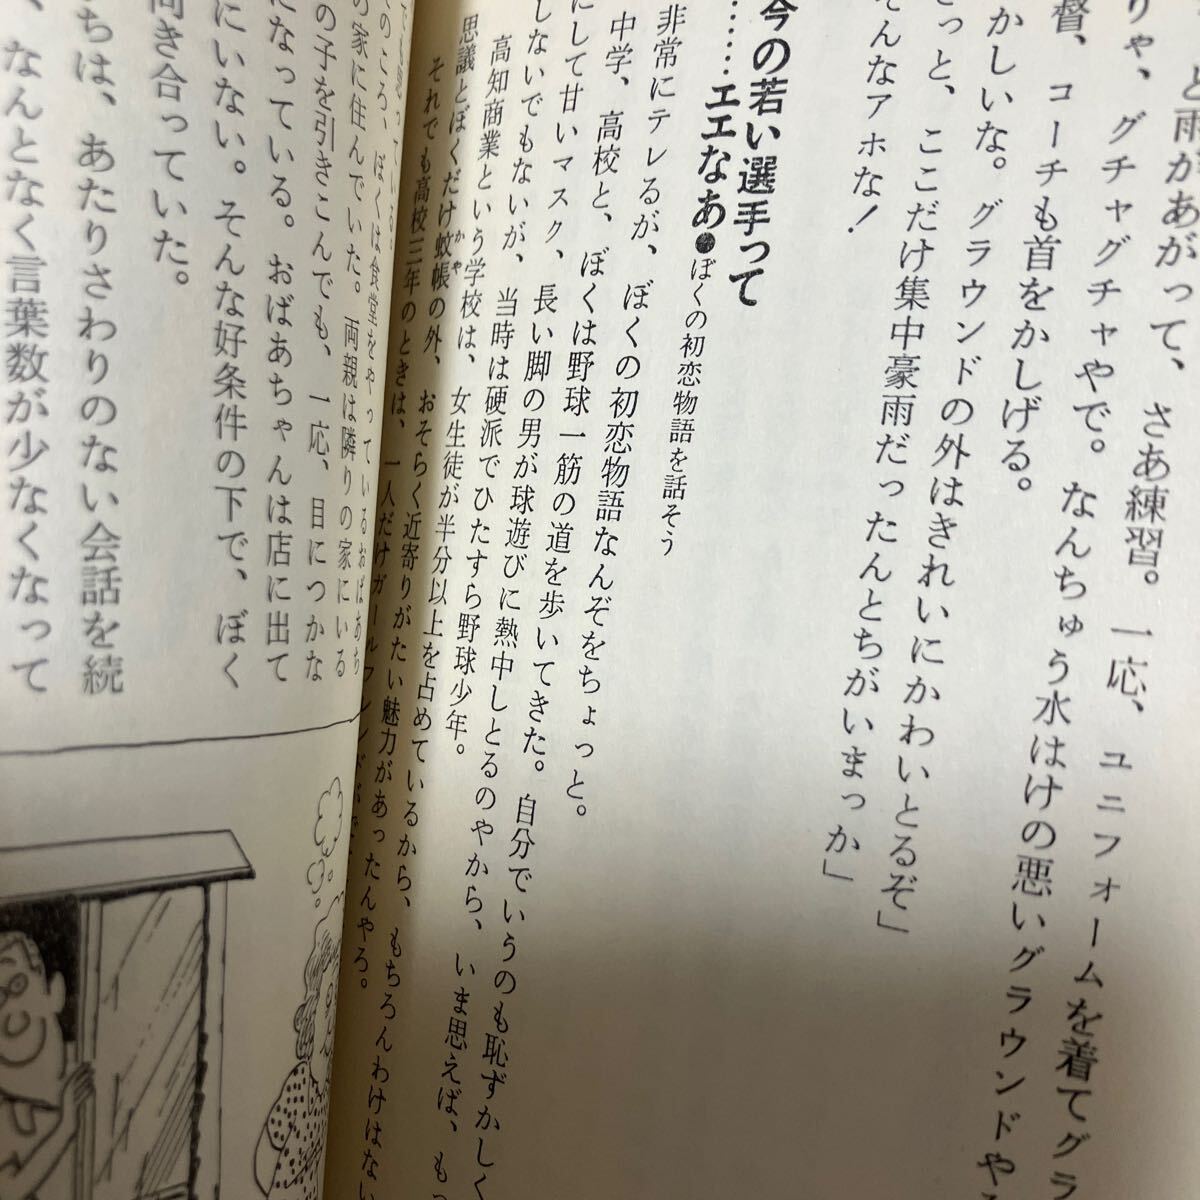 と雨があがって、さあ練習。一応、ユニフォームを着てグラ
りゃ、グチャグチャやで。なんちゅう水はけの悪いグラウンドや
督、コーチも首をかしげる。
かしいな。グラウンドの外はきれいにかわいとるぞ」
っと、ここだけ集中豪雨だったんとちがいまっか」
そんなアホな！
今の若い選手って
……エエなあ●ぼくの初恋物語を話そう
非常にテレるが、ぼくの初恋物語なんぞをちょっと。
中学、高校と、ぼくは野球一筋の道を歩いてきた。自分でいうのも恥ずかしく
にして甘いマスク、長い脚の男が球遊びに熱中しとるのやから、いま思えば、もっ
しないでもないが、当時は硬派でひたすら野球少年。
高知商業という学校は、女生徒が半分以上を占めているから、もちろんわけはない
思議とぼくだけ蚊帳の外、おそらく近寄りがたい魅力があったんやろ。
かや
それでも高校三年のときは、一人だけガールフレンドが
のころ、ぼくは食堂をやっているおばあち
の家に住んでいた。両親は隣りの家にいる
の子を引きこんでも、一応、目につかな
になっている。おばあちゃんは店に出て
にいない。そんな好条件の下で、ぼく
向き合っていた。
ちは、あたりさわりのない会話を続
、なんとなく言葉数が少なくなって